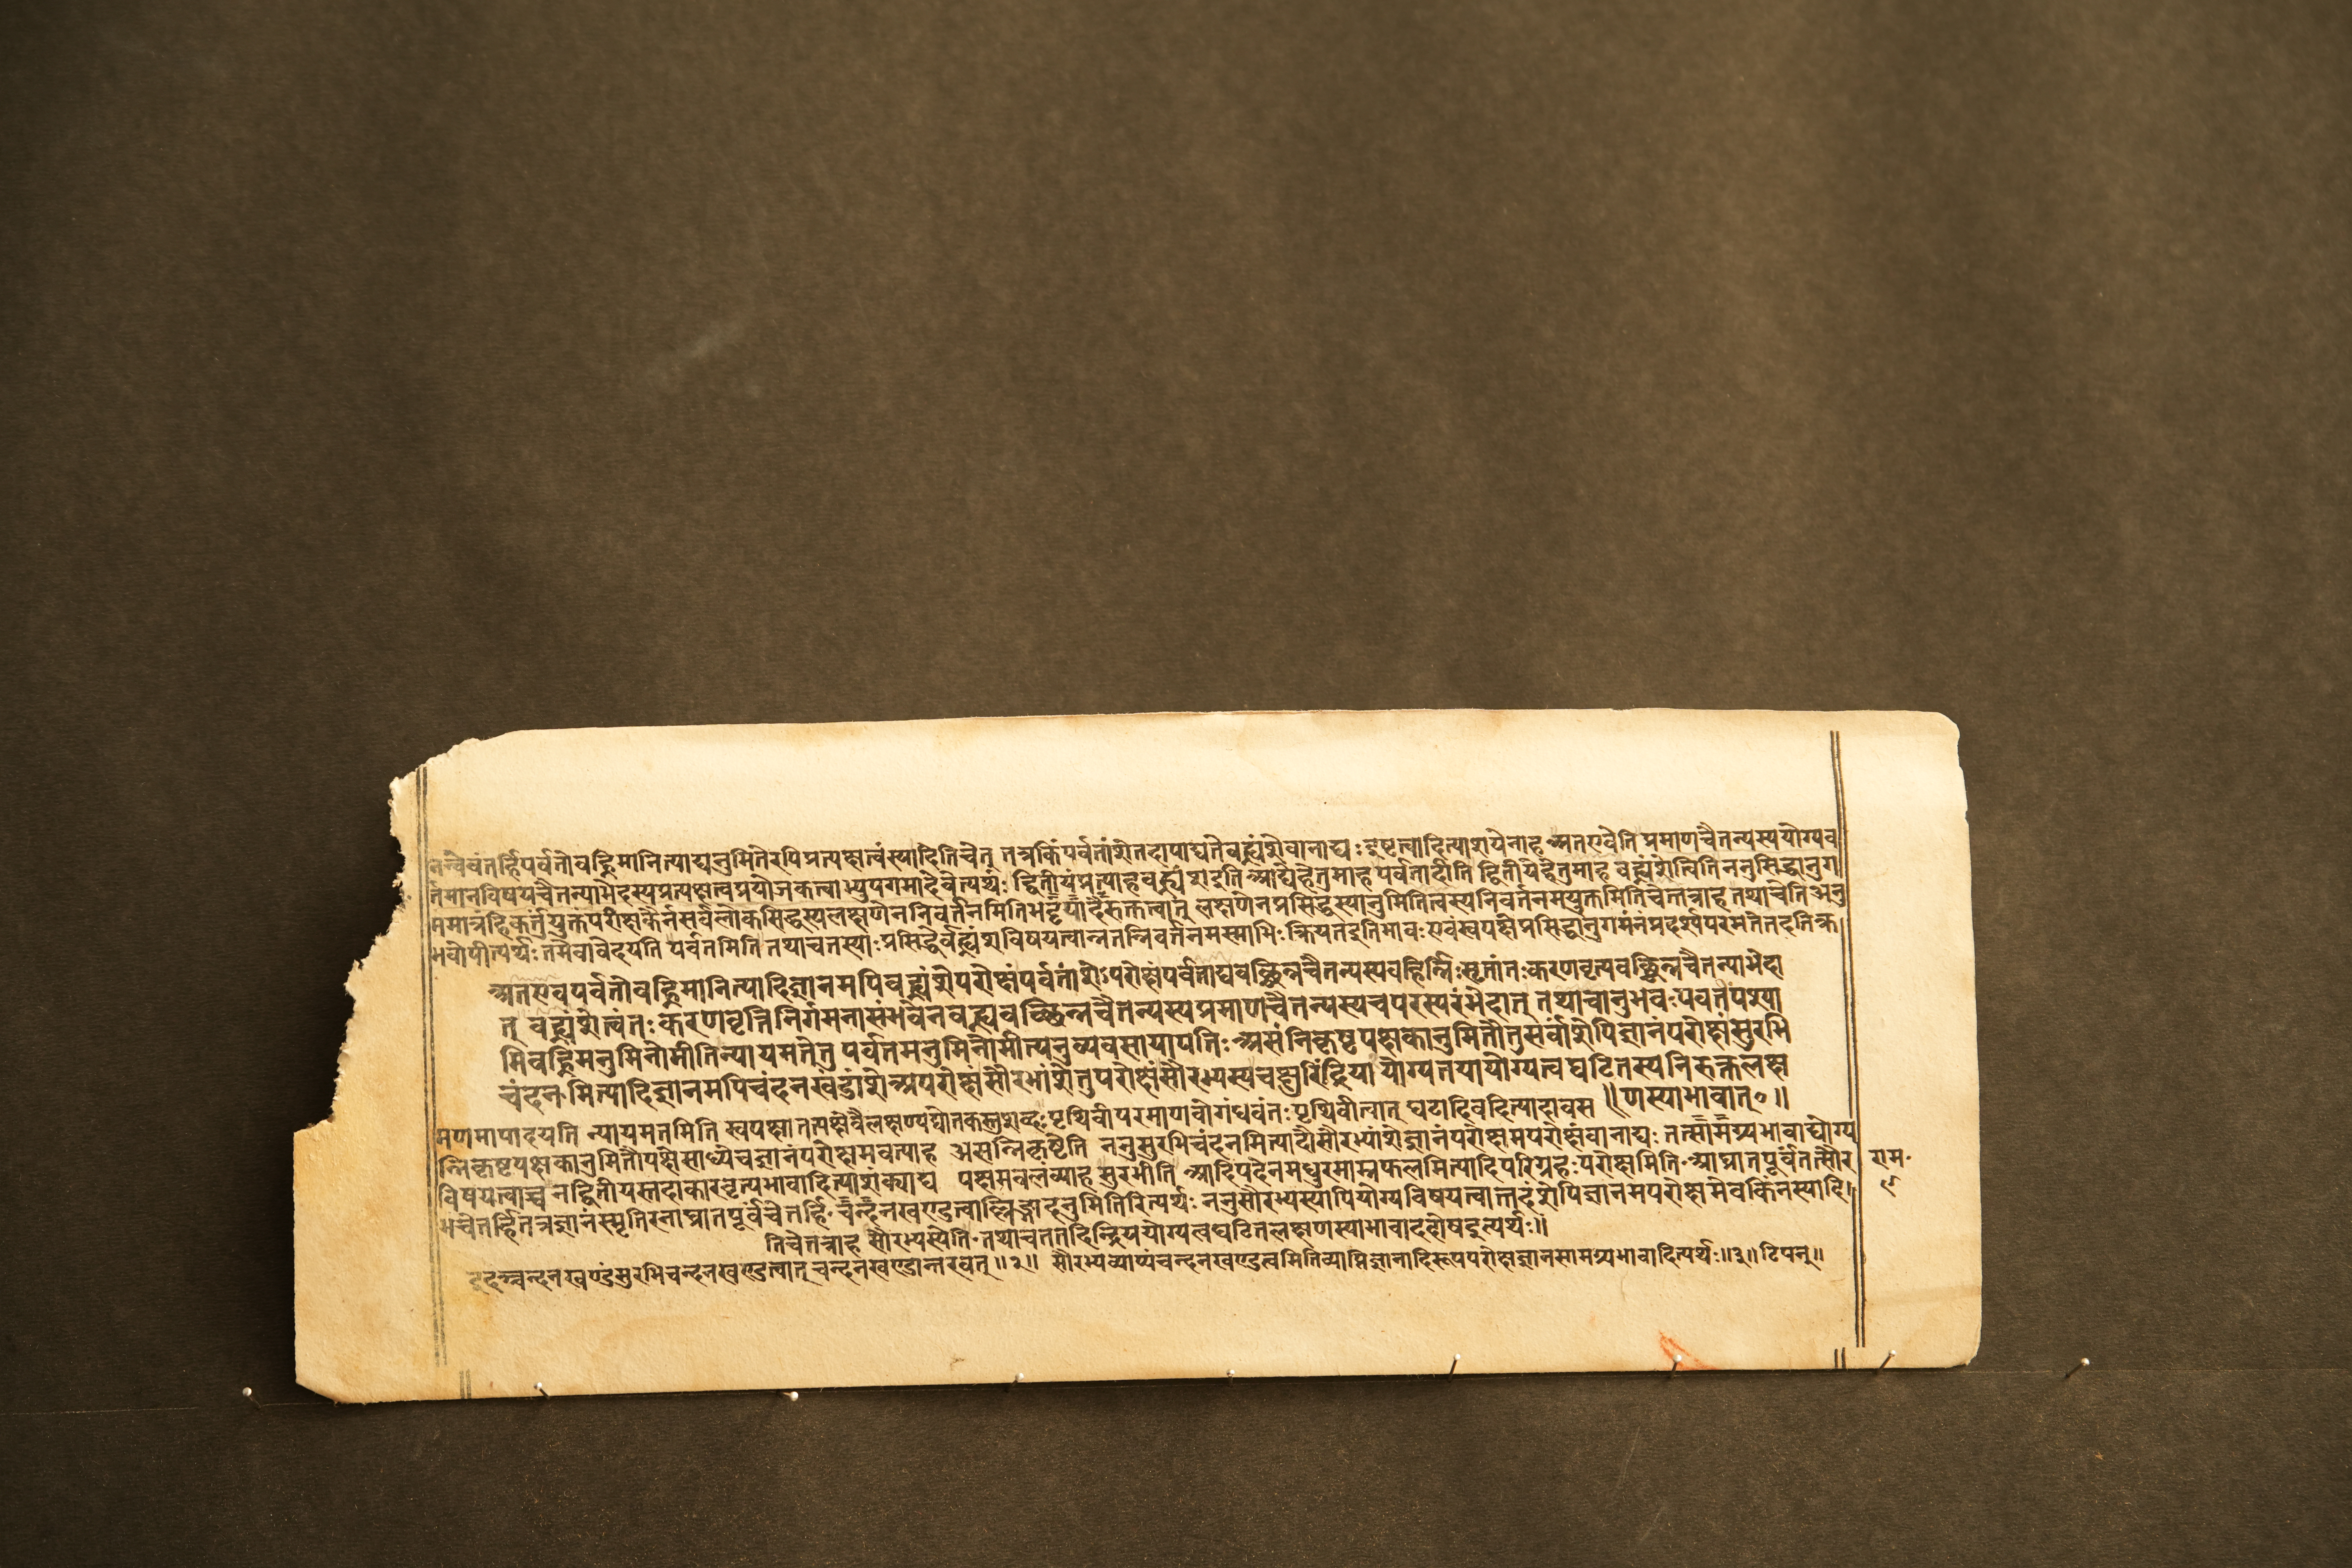 नन्वेवंतर्हिपर्वतोवह्निमानित्याद्यनुमितेरपिप्रत्यक्षत्वंस्यादितिचेत् तत्रकिंपर्वतांशेतदापाद्यतेवह्न्यंशेवानाद्यः इष्टत्वादित्याशयेनाह अतएवेति प्रमाणचैतन्यस्ययोग्यव
तिमानविषयचैतन्याभेदस्यप्रत्यक्षत्वप्रयोजकत्वाभ्युपगमादेवेत्यर्थः द्वितीयंप्रत्याहवह्न्यंशइति आद्येहेतुमाहपर्वतादीति द्वितीयेहेतुमाह वह्न्यंशेत्विति ननुसिद्धानुग
ममात्रंहिकर्तुंयुक्तंपरीक्षकेनसर्वलोकसिद्धस्यलक्षणेननिवर्तनमितिभट्टपादैरुक्तत्वात् लक्षणेनप्रसिद्धस्यानुमितित्वस्यनिवर्तनमयुक्तमितिचेत्तत्राह तथाचेति अनु
भवोपीत्यर्थः तमेवावेदयति पर्वतमिति तथाचतस्याःप्रसिद्धेर्वह्न्यंशविषयत्वान्नतन्निवर्तनमस्माभिःक्रियतइतिभावः एवंस्वपक्षेप्रसिद्धानुगमनंप्रदर्श्यपरमतेतदतिक्र
अतएवपर्वतोवह्निमानित्यादिज्ञानमपिवह्न्यंशेपरोक्षंपर्वतांशेऽपरोक्षंपर्वताद्यवच्छिन्नचैतन्यस्यवहिर्निःसृतांतःकरणवृत्यवच्छिन्नचैतन्याभेदा
त् वह्न्यंशेत्वंतःकरणवृत्तिनिर्गमनासंभवेनवह्न्यवच्छिन्नचैतन्यस्यप्रमाणचैतन्यस्यचपरस्परंभेदात् तथाचानुभवःपर्वतंपश्या
मिवह्निमनुमिनोमीतिन्यायमतेतु पर्वतमनुमिनोमीत्यनुव्यवसायापत्तिः असंनिकृष्टपक्षकानुमितौतुसर्वांशेपिज्ञानंपरोक्षंसुरभि
चंदनमित्यादिज्ञानमपिचंदनखंडांशेअपरोक्षंसौरभांशेतुपरोक्षंसौरभ्यस्यचक्षुरिंद्रियायोग्यतयायोग्यत्वघटितस्यनिरुक्तलक्ष
णस्याभावात्१॥
मणमापादयति न्यायमतमिति स्वपक्षातत्पक्षेवैलक्षण्यद्योतकस्तुशब्दःपृथिवीपरमाणवोगंधवंतःपृथिवीत्वात् घटादिवदित्यादावस
न्निकृष्टपक्षकानुमितौपक्षेसाध्येचज्ञानंपरोक्षमेवेत्याह असन्निकृष्टेति ननुसुरभिचंदनमित्यादौसौरभ्यांशेज्ञानंपरोक्षमपरोक्षंवानाद्यः तत्सामग्र्यभावाद्योग्य
विषयत्वाच्च नद्वितीयस्तदाकारवृत्यभावादित्याशंक्याद्य पक्षमवलंव्याह सुरभीति आदिपदेनमधुरमाम्रफलमित्यादिपरिग्रहःपरोक्षमिति आघ्रातपूर्वंतत्सौर
भंचेतर्हितत्रज्ञानंस्मृतिरनाघ्रातपूर्वंचेतर्हि चन्दनखण्डत्वाल्लिङ्गादनुमितिरित्यर्थः ननुसौरभ्यस्यापियोग्यविषयत्वात्तदंशेपिज्ञानमपरोक्षमेवकिंनस्यादि
तिचेतत्राह सौरभ्यस्येति तथाचतत्तदिन्द्रिययोग्यत्वघटितलक्षणस्याभावादहोषइत्यर्थः॥
इदञ्चन्दनखण्डंसुरभिचन्दनखण्डत्वात् चन्दनखण्डान्तरवत् ॥२॥ सौरभ्यव्याप्यंचन्दनखण्डत्वमितिव्याप्तिज्ञानादिरूपपरोक्षज्ञानसामग्र्यभावादित्यर्थः॥३॥ टिपन्॥
राम
९